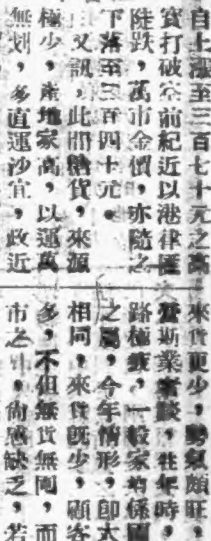 自上漲至三百七十元之高
實打破空前紀近以港律匯
陡跌,萬市金價,亦隨之
下落至三百四十元。
又訊,此間膳貨,來源
極少,產地家高,以運萬
無划,多直運沙宜,政近
來貨更少,勢氣頗旺,
業者談,往年時,
路極疲,一般家均係
之屬,今年情形,卽大
相同,來貨旣少,顧客
多,不但無貨無間,而
市之中,尚感缺乏,若